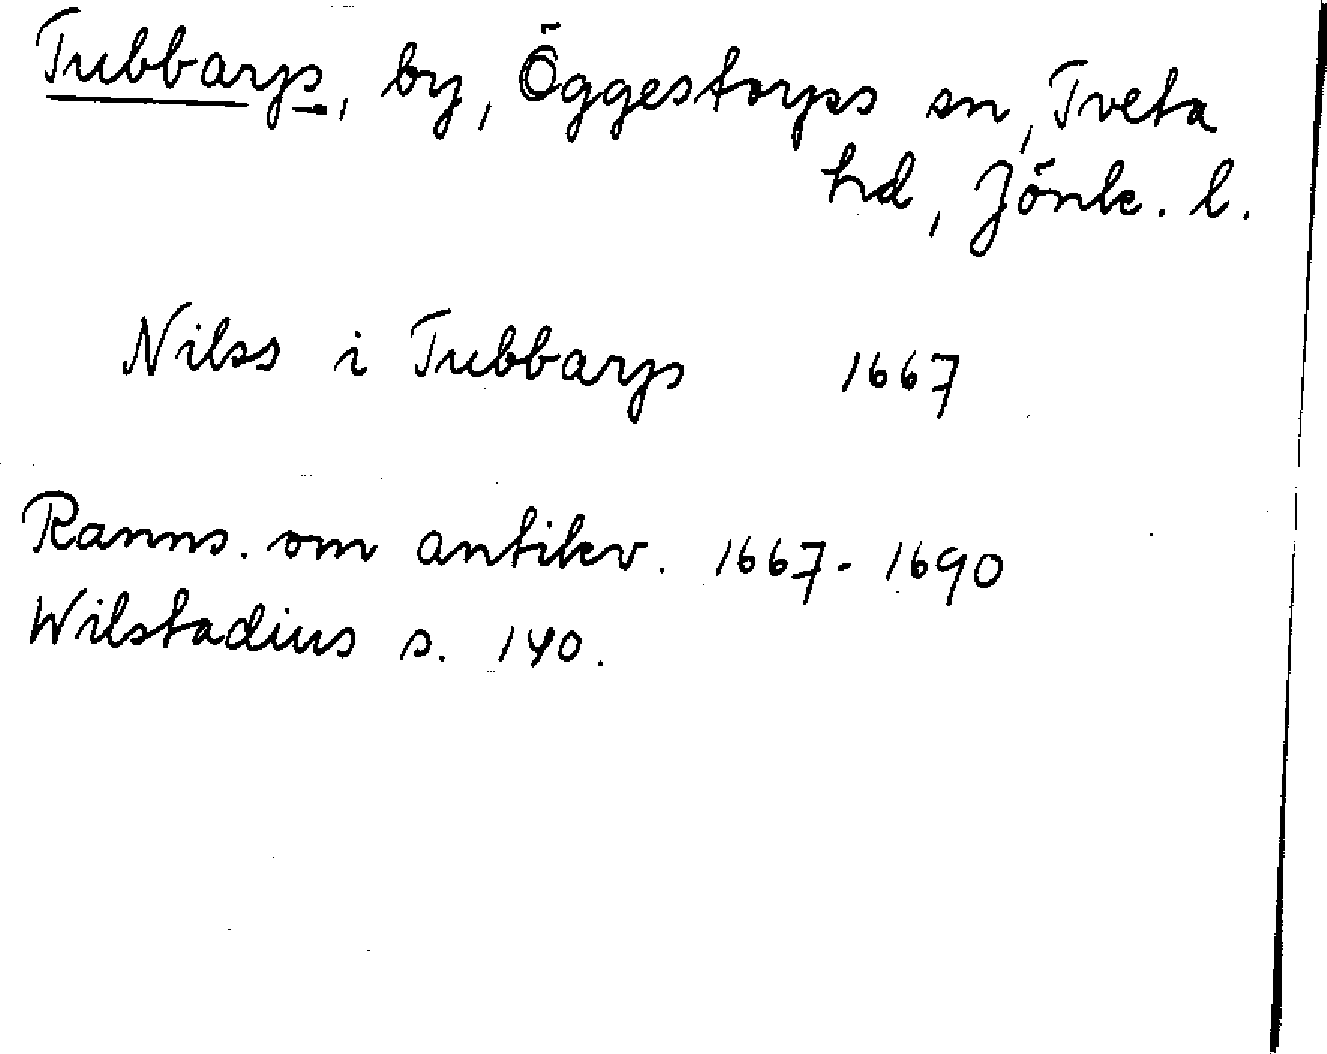 Tubbarp, by, Öggestorps sn, Tveta
hd, Jönk. l.
Nilss i Tubbarp 1667
Ranns. om antikv. 1667-1690
Wilstadius s. 140.